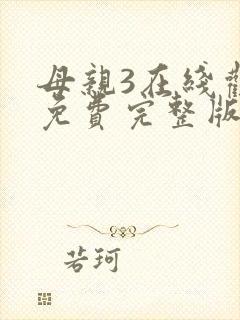 母親3在綫
免費完整版
若珂